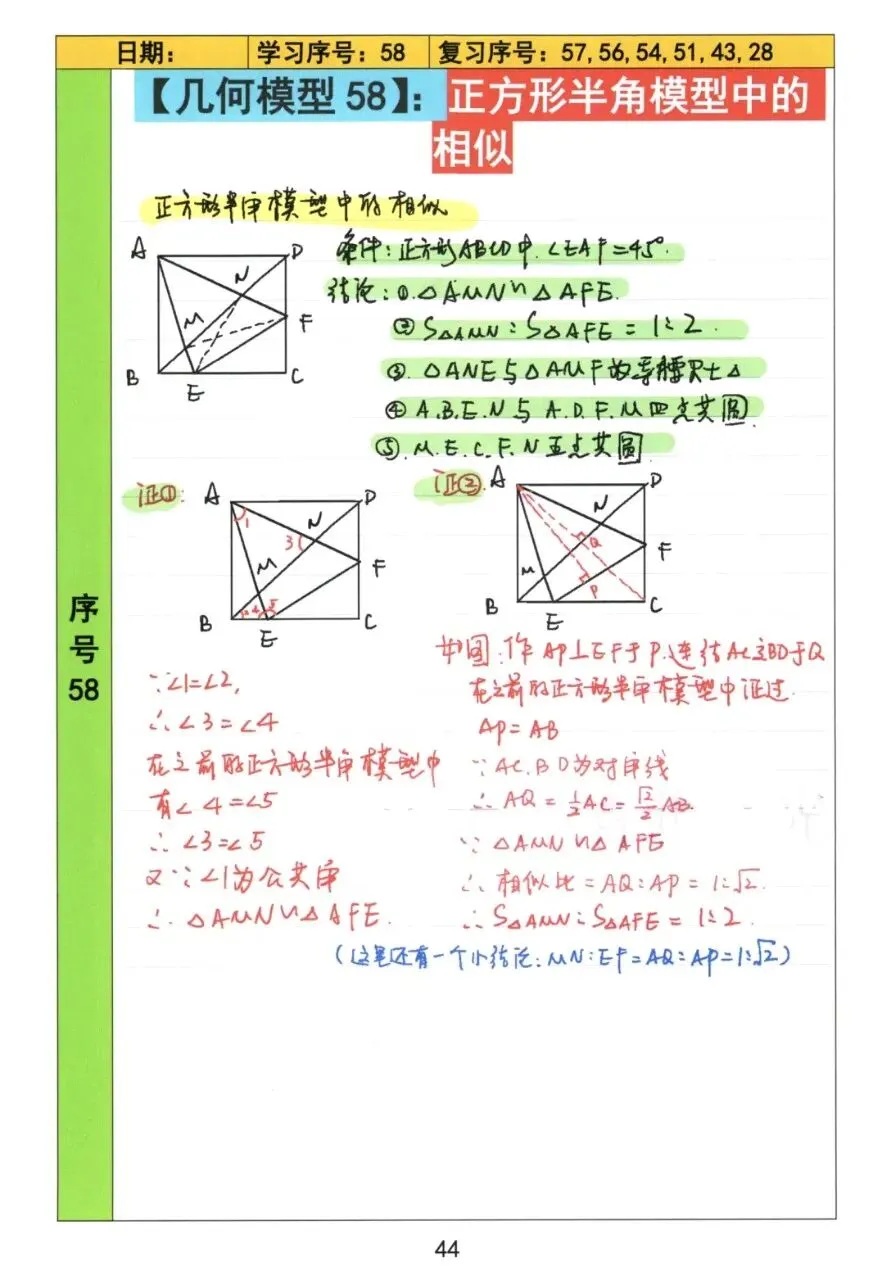 日期: 学习序号: 58 复习序号: 57, 56, 54, 51, 43, 28
【几何模型 58】: 正方形半角模型中的
相似
序
号
58
正方形半角模型中的相似
A D N M F B E C
条件: 正方形ABCD中. ∠EAF=45°.
结论: ①. △AMN∽△AFE.
② S△AMN : S△AFE = 1:2.
③. △ANE与△AMF为等腰Rt△
④ A.B.E.N与A.D.F.M四点共圆
⑤. M.E.C.F.N五点共圆
证①:
A D 1 N 3 M F B 2 4 5 E C
∵∠1=∠2,
∴∠3=∠4
在之前的正方形半角模型中
有∠4=∠5
∴∠3=∠5
又∵∠1为公共角
∴△AMN∽△AFE.
证②.
A D N Q M F P B E C
如图: 作AP⊥EF于P. 连结AC交BD于Q
在之前的正方形半角模型中证过.
AP=AB
∵AC.BD为对角线
∴AQ=½AC=√2/2 AB.
∵△AMN∽△AFE
∴相似比=AQ:AP=1:√2.
∴S△AMN:S△AFE=1:2.
(这里还有一个小结论: MN:EF=AQ:AP=1:√2)
44